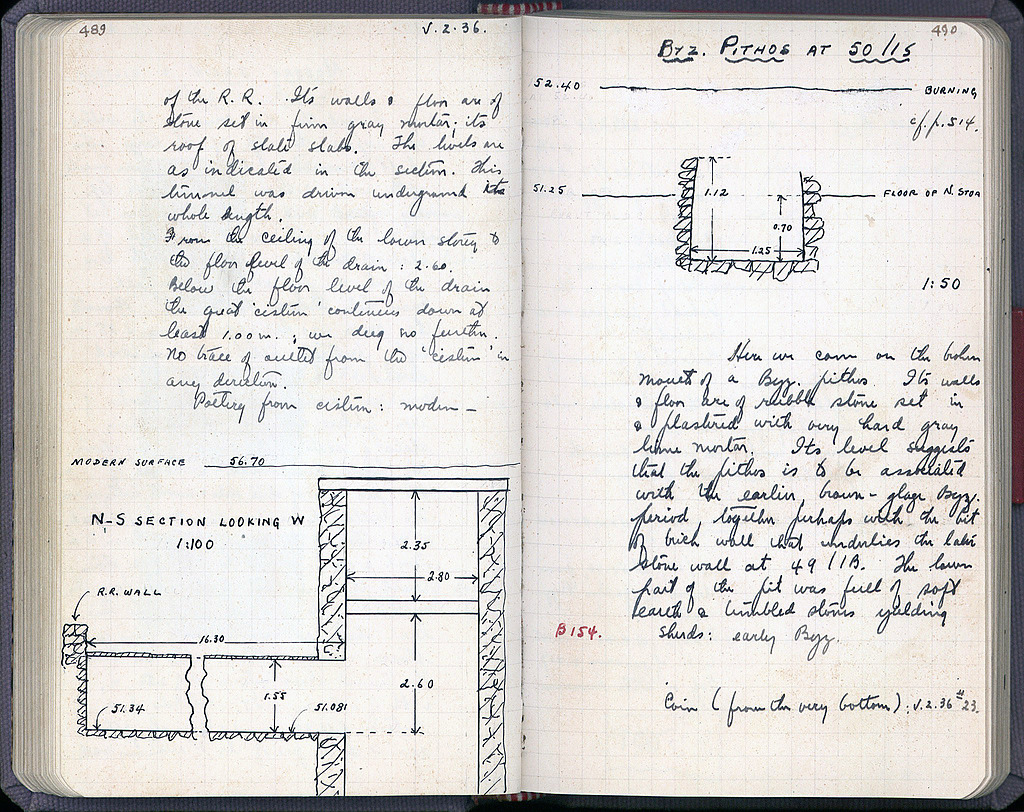 489
V.2.36.
of the R.R. Its walls & floor are of
stone set in firm gray mortar; its
roof of slate slabs. The levels are
as indicated in the section. This
tunnel was driven underground its
whole length.
From the ceiling of the lower storey to
the floor level of the drain : 2.60.
Below the floor level of the drain
the great 'cistern' continues down at
least 1.00 m. ; we deep no further.
No trace of outlet from the 'cistern' in
any direction.
Pottery from cistern : modern –
MODERN SURFACE 56.70
N-S SECTION LOOKING W
1:100
2.35
2.80
R.R. WALL
16.30
1.55
2.60
51.34
51.081
490
BYZ. PITHOS AT 50/15
52.40
BURNING
cf. p. 514.
51.25
1.12
FLOOR OF N. STOA
0.70
1.25
1:50
Here we come on the broken
mouth of a Byz. pithos. Its walls
& floor are of rubble stone set in
& plastered with very hard gray
lime mortar. Its level suggests
that the pithos is to be associated
with the earlier, brown-glaze Byz.
period, together perhaps with the bit
of brick wall that underlies the later
stone wall at 49/1B. The lower
part of the pit was full of soft
earth & tumbled stones yielding
B 154.
sherds: early Byz.
Coin (from the very bottom): V.2.36 # 23.